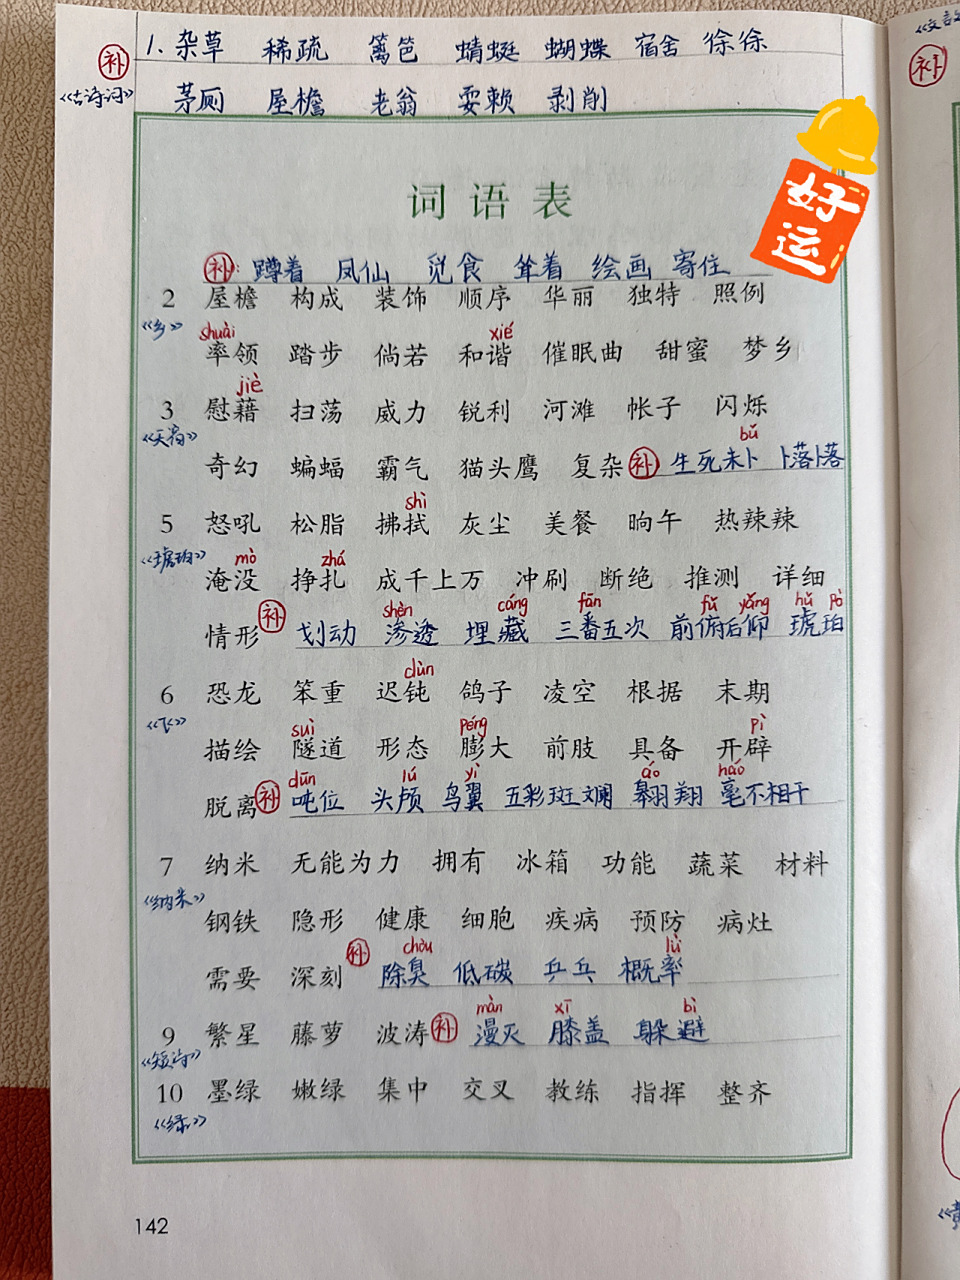 补 1. 杂草 稀疏 篱笆 蜻蜓 蝴蝶 宿舍 徐徐
《古诗词》 茅厕 屋檐 老翁 耍赖 剥削
补
好运
词语表
补: 蹲着 凤仙 觅食 耸着 绘画 寄住
2 屋檐 构成 装饰 顺序 华丽 独特 照例
《乡》
shuài xié
率领 踏步 倘若 和谐 催眠曲 甜蜜 梦乡
jiè
3 慰藉 扫荡 威力 锐利 河滩 帐子 闪烁
《天窗》
bǔ
奇幻 蝙蝠 霸气 猫头鹰 复杂 补 生死未卜 卜落卜落
shì
5 怒吼 松脂 拂拭 灰尘 美餐 晌午 热辣辣
《琥珀》
mò zhá
淹没 挣扎 成千上万 冲刷 断绝 推测 详细
shèn cáng fān fǔ yǎng hǔ pò
情形 补 划动 渗透 埋藏 三番五次 前俯后仰 琥珀
dùn
6 恐龙 笨重 迟钝 鸽子 凌空 根据 末期
《飞》
suì péng pì
描绘 隧道 形态 膨大 前肢 具备 开辟
dūn lú yì áo háo
脱离 补 吨位 头颅 鸟翼 五彩斑斓 翱翔 毫不相干
7 纳米 无能为力 拥有 冰箱 功能 蔬菜 材料
《纳米》
钢铁 隐形 健康 细胞 疾病 预防 病灶
chòu lǜ
需要 深刻 补 除臭 低碳 乒乓 概率
màn xī bì
9 繁星 藤萝 波涛 补 漫灭 膝盖 躲避
《短诗》
10 墨绿 嫩绿 集中 交叉 教练 指挥 整齐
《绿》
142